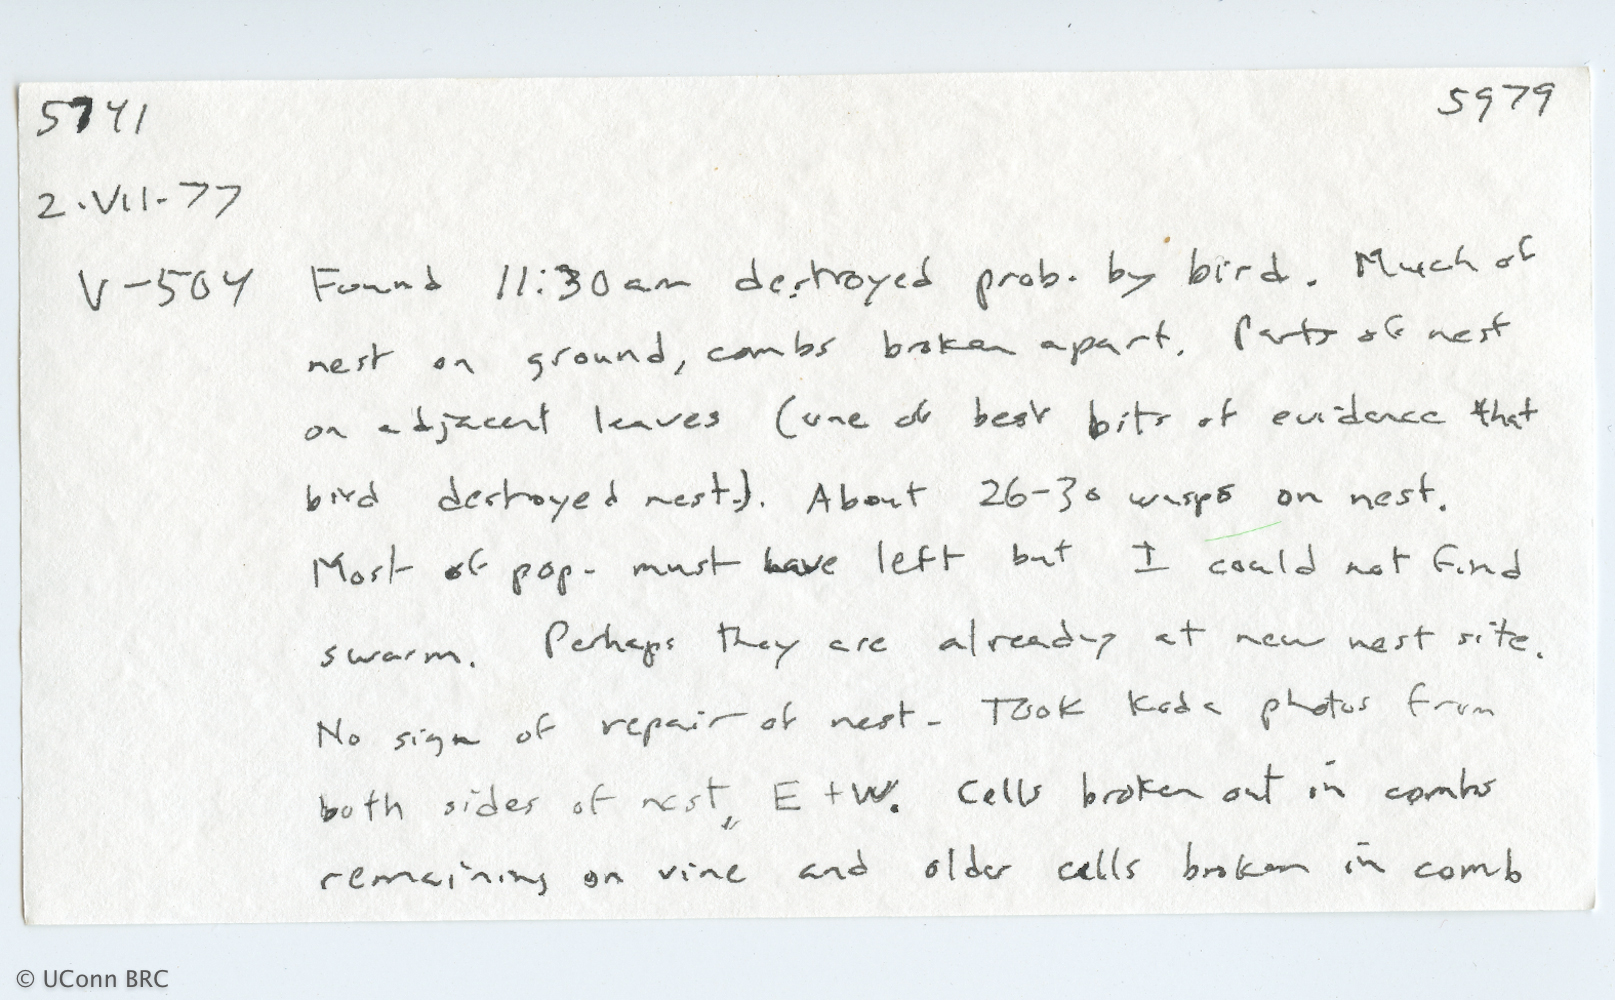 5741 5979
2.VII-77
V-504 Found 11:30am destroyed prob. by bird. Much of
nest on ground, combs broken apart. Parts of nest
on adjacent leaves (one of best bits of evidence that
bird destroyed nest). About 26-30 wasps on nest.
Most of pop. must have left but I could not find
swarm. Perhaps they are already at new nest site.
No sign of repair of nest. Took Koda photos from
both sides of nest, E + W. Cells broken out in combs
remaining on vine and older cells broken in comb
© UConn BRC